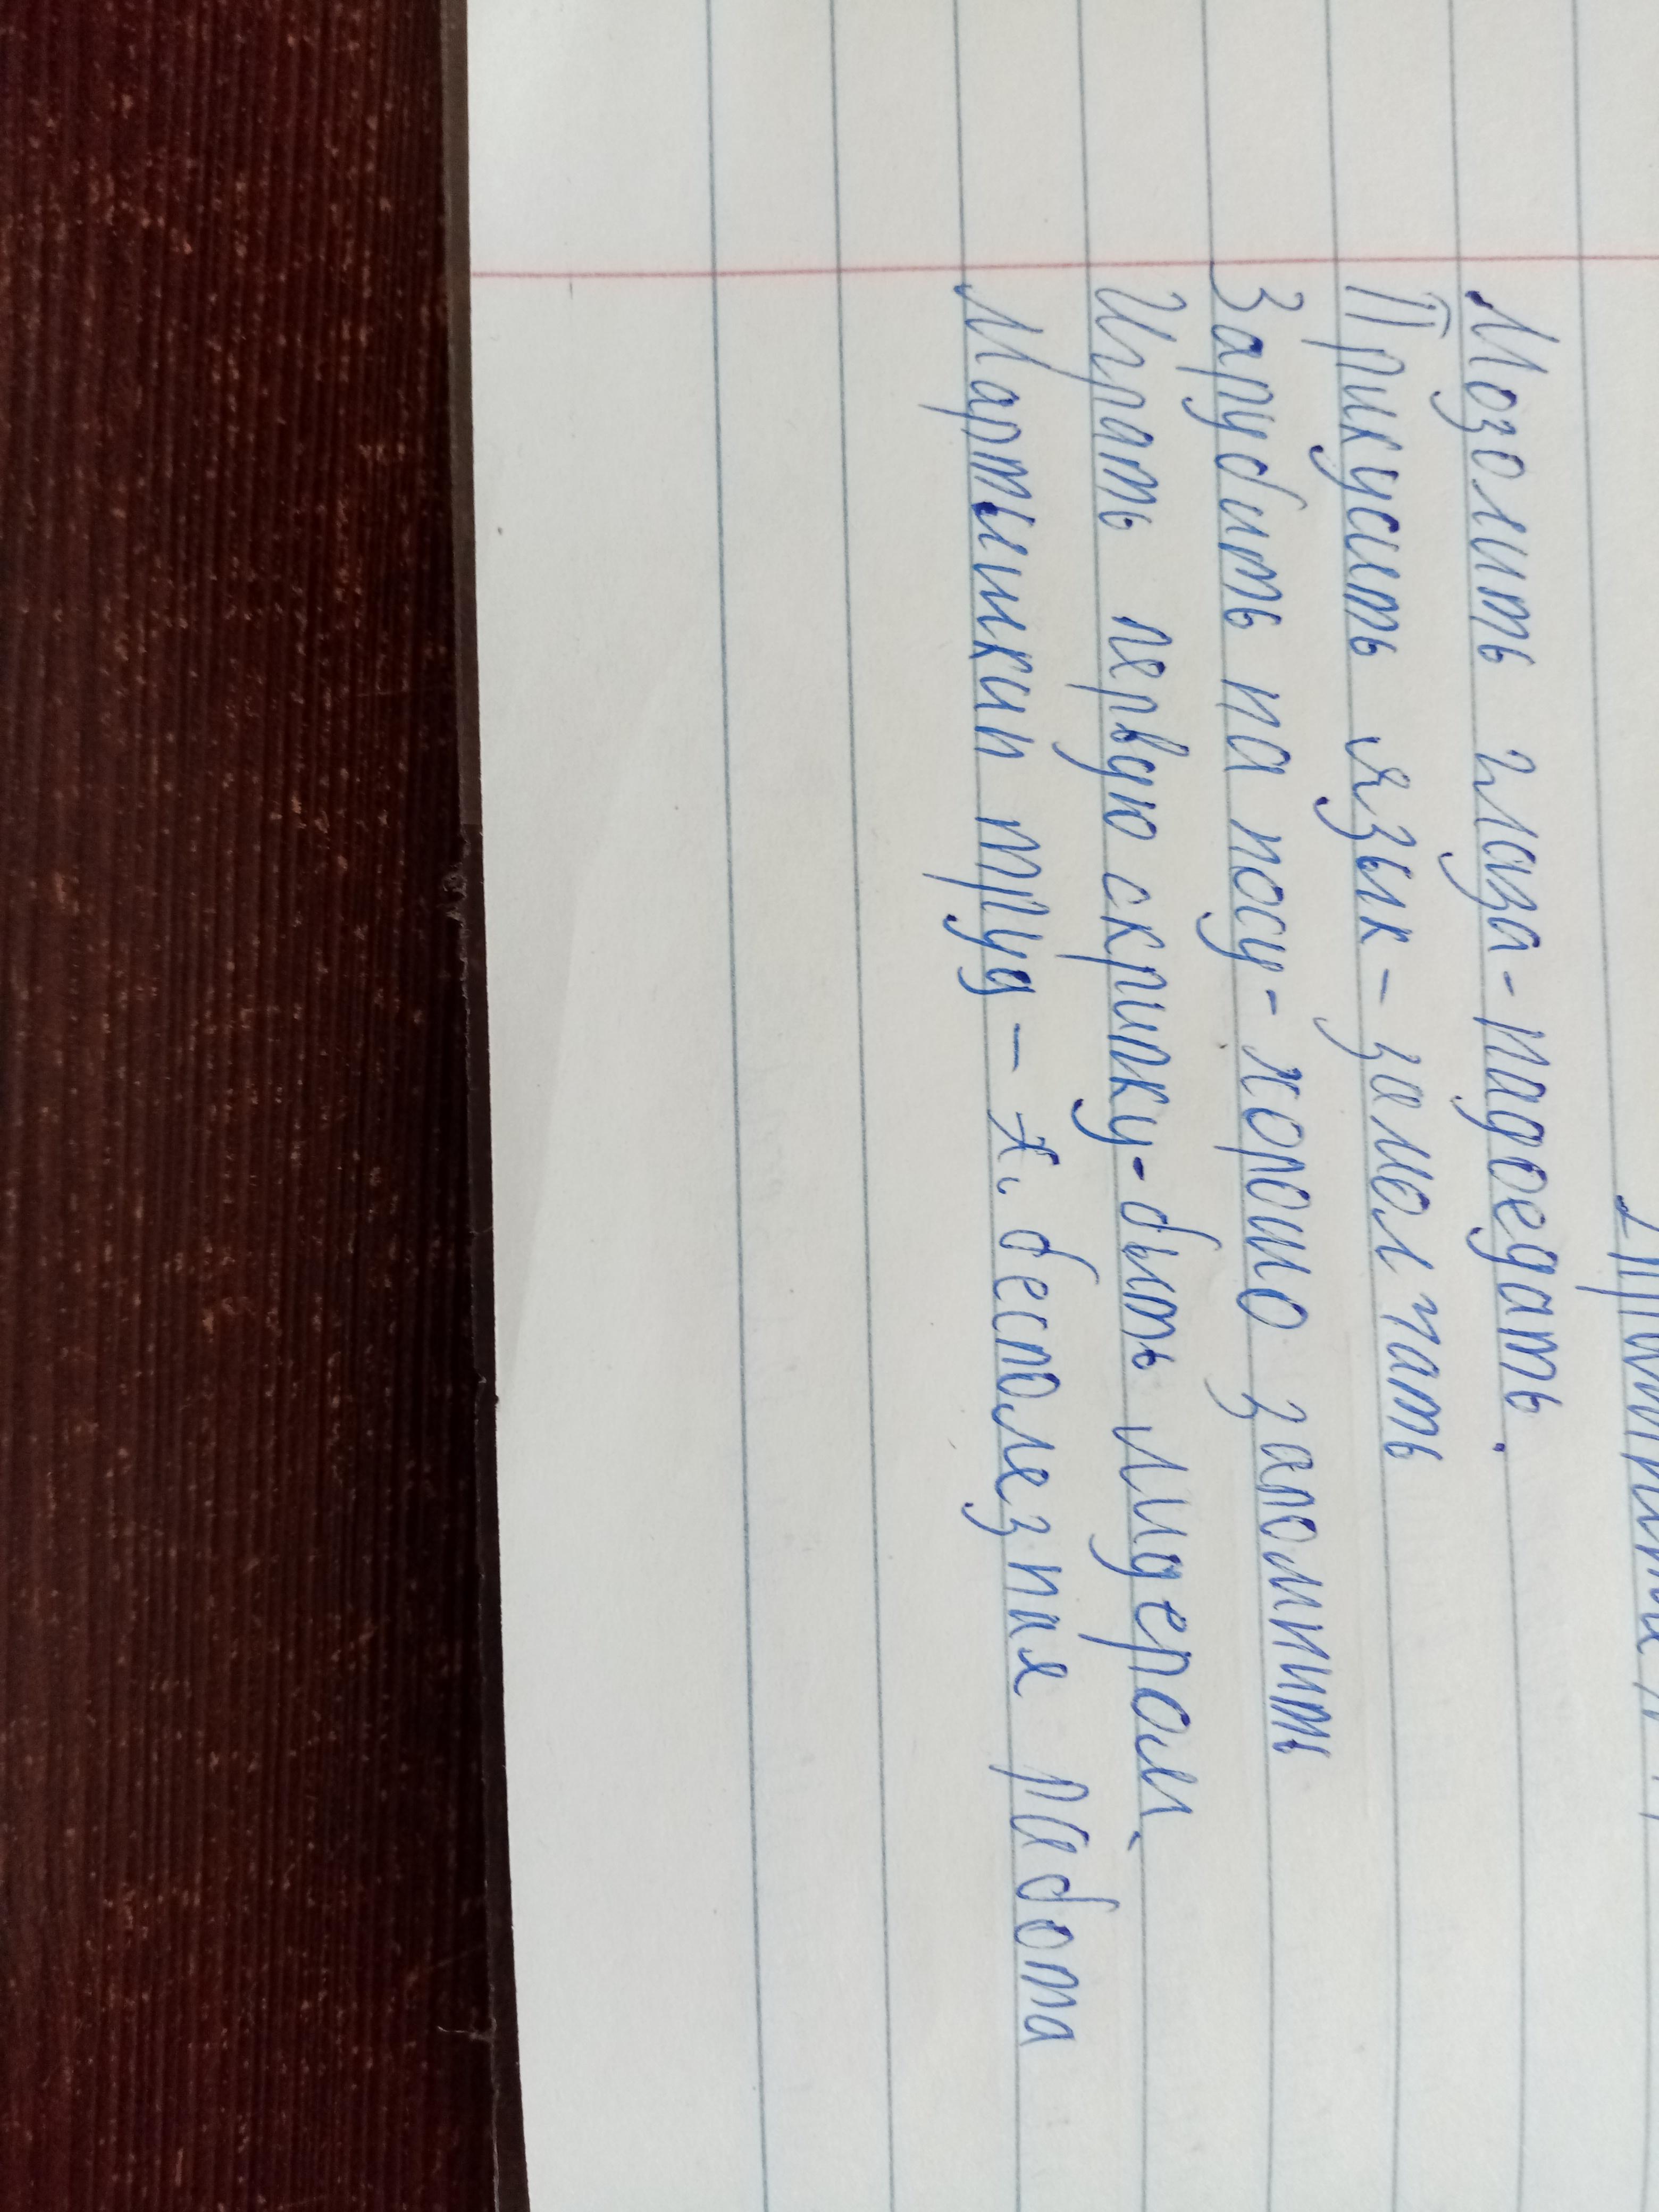 Мозолить глаза - надоедать.
Прикусить язык - замолчать
Зарубить на носу - хорошо запомнить
Играть первую скрипку - быть лидером.
Мартышкин труд - бесполезная работа